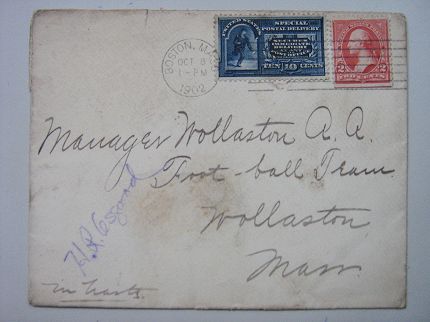 BOSTON, MASS.
OCT 8
1-PM
1902
UNITED STATES
SPECIAL
POSTAL DELIVERY
SECURES
IMMEDIATE
TEN 10 CENTS
2 2
TWO CENTS
Manager Wollaston A. A.
Foot-ball Team
Wollaston
Mass.
in haste.